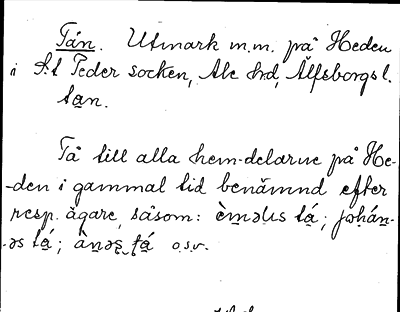 Tån. Utmark m.m. på Heden
i S:t Peder socken, Ale hd, Älfsborgs l.
ta̱n.
Tå till alla hem-delarne på He-
-den i gammal tid benämnd efter
resp. ägare, såsom: tá̱; johán̠-
-əs tá̱; o.s.v.